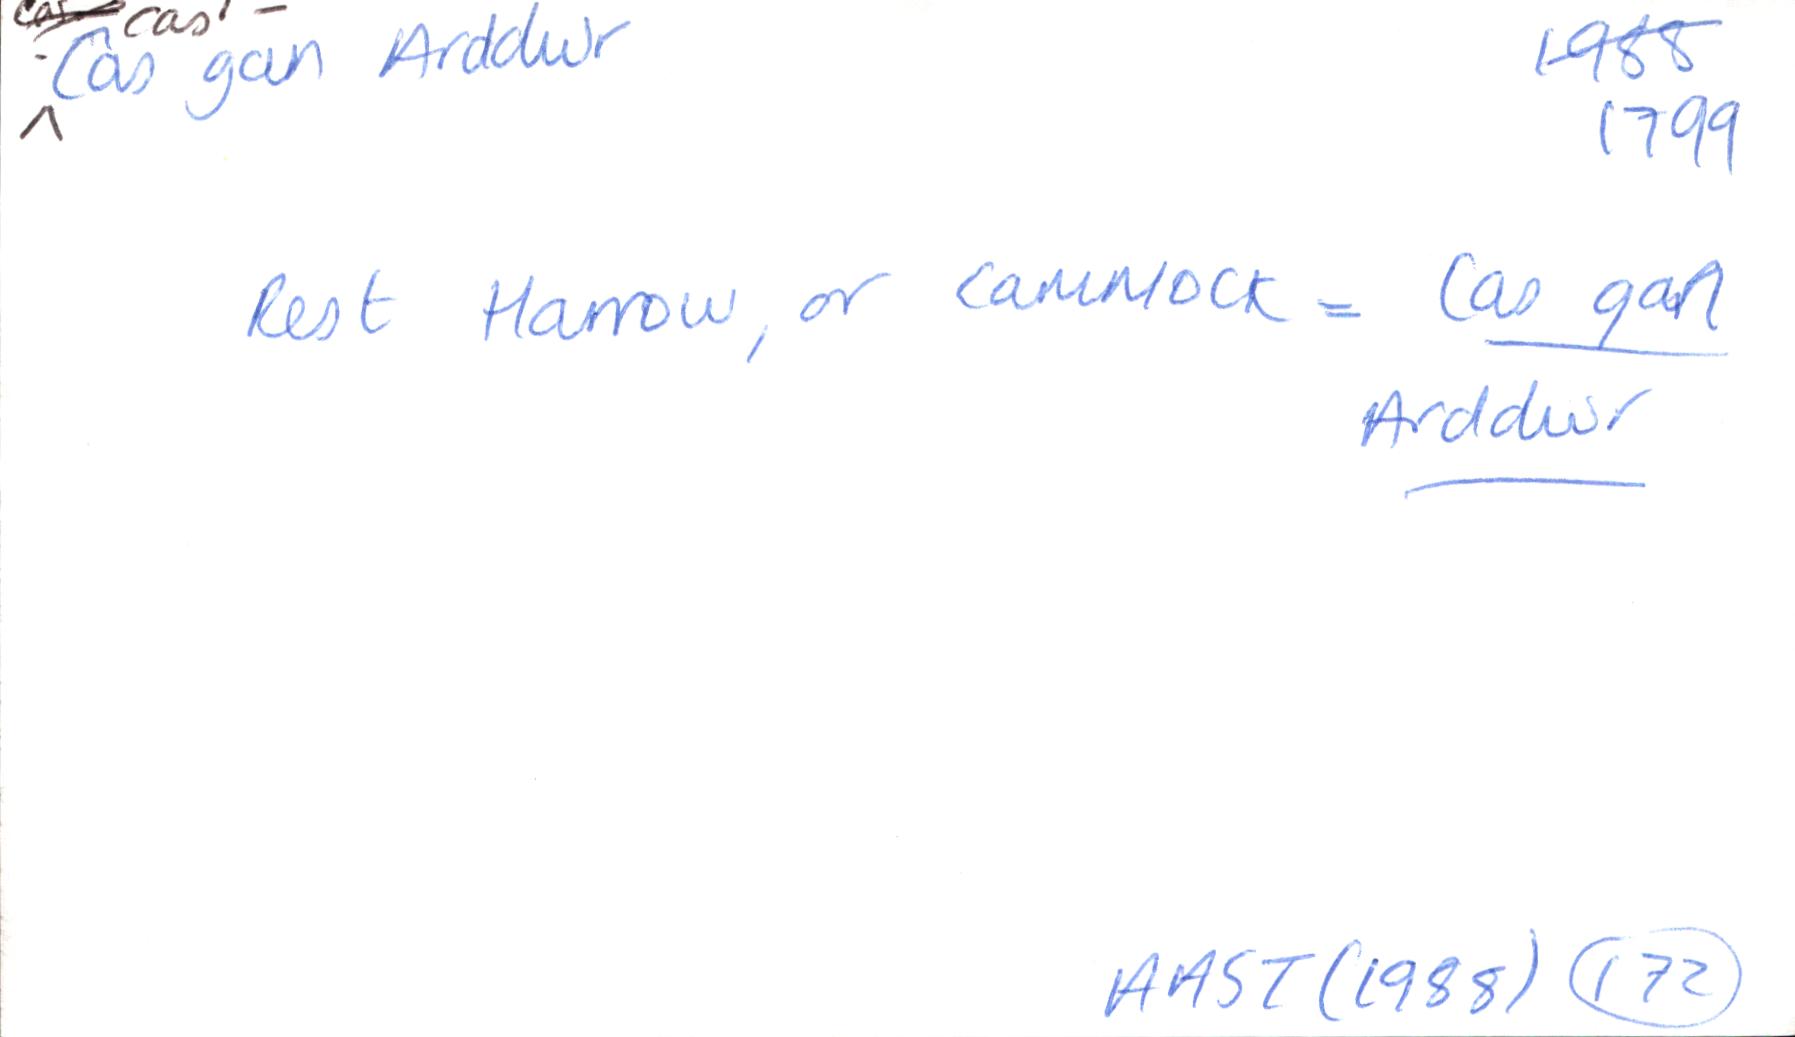 cas¹ -
Câs gan Arddwr
1988
1799
Rest Harrow, or cammock = Cas gan
Arddwr
AAST (1988) 172